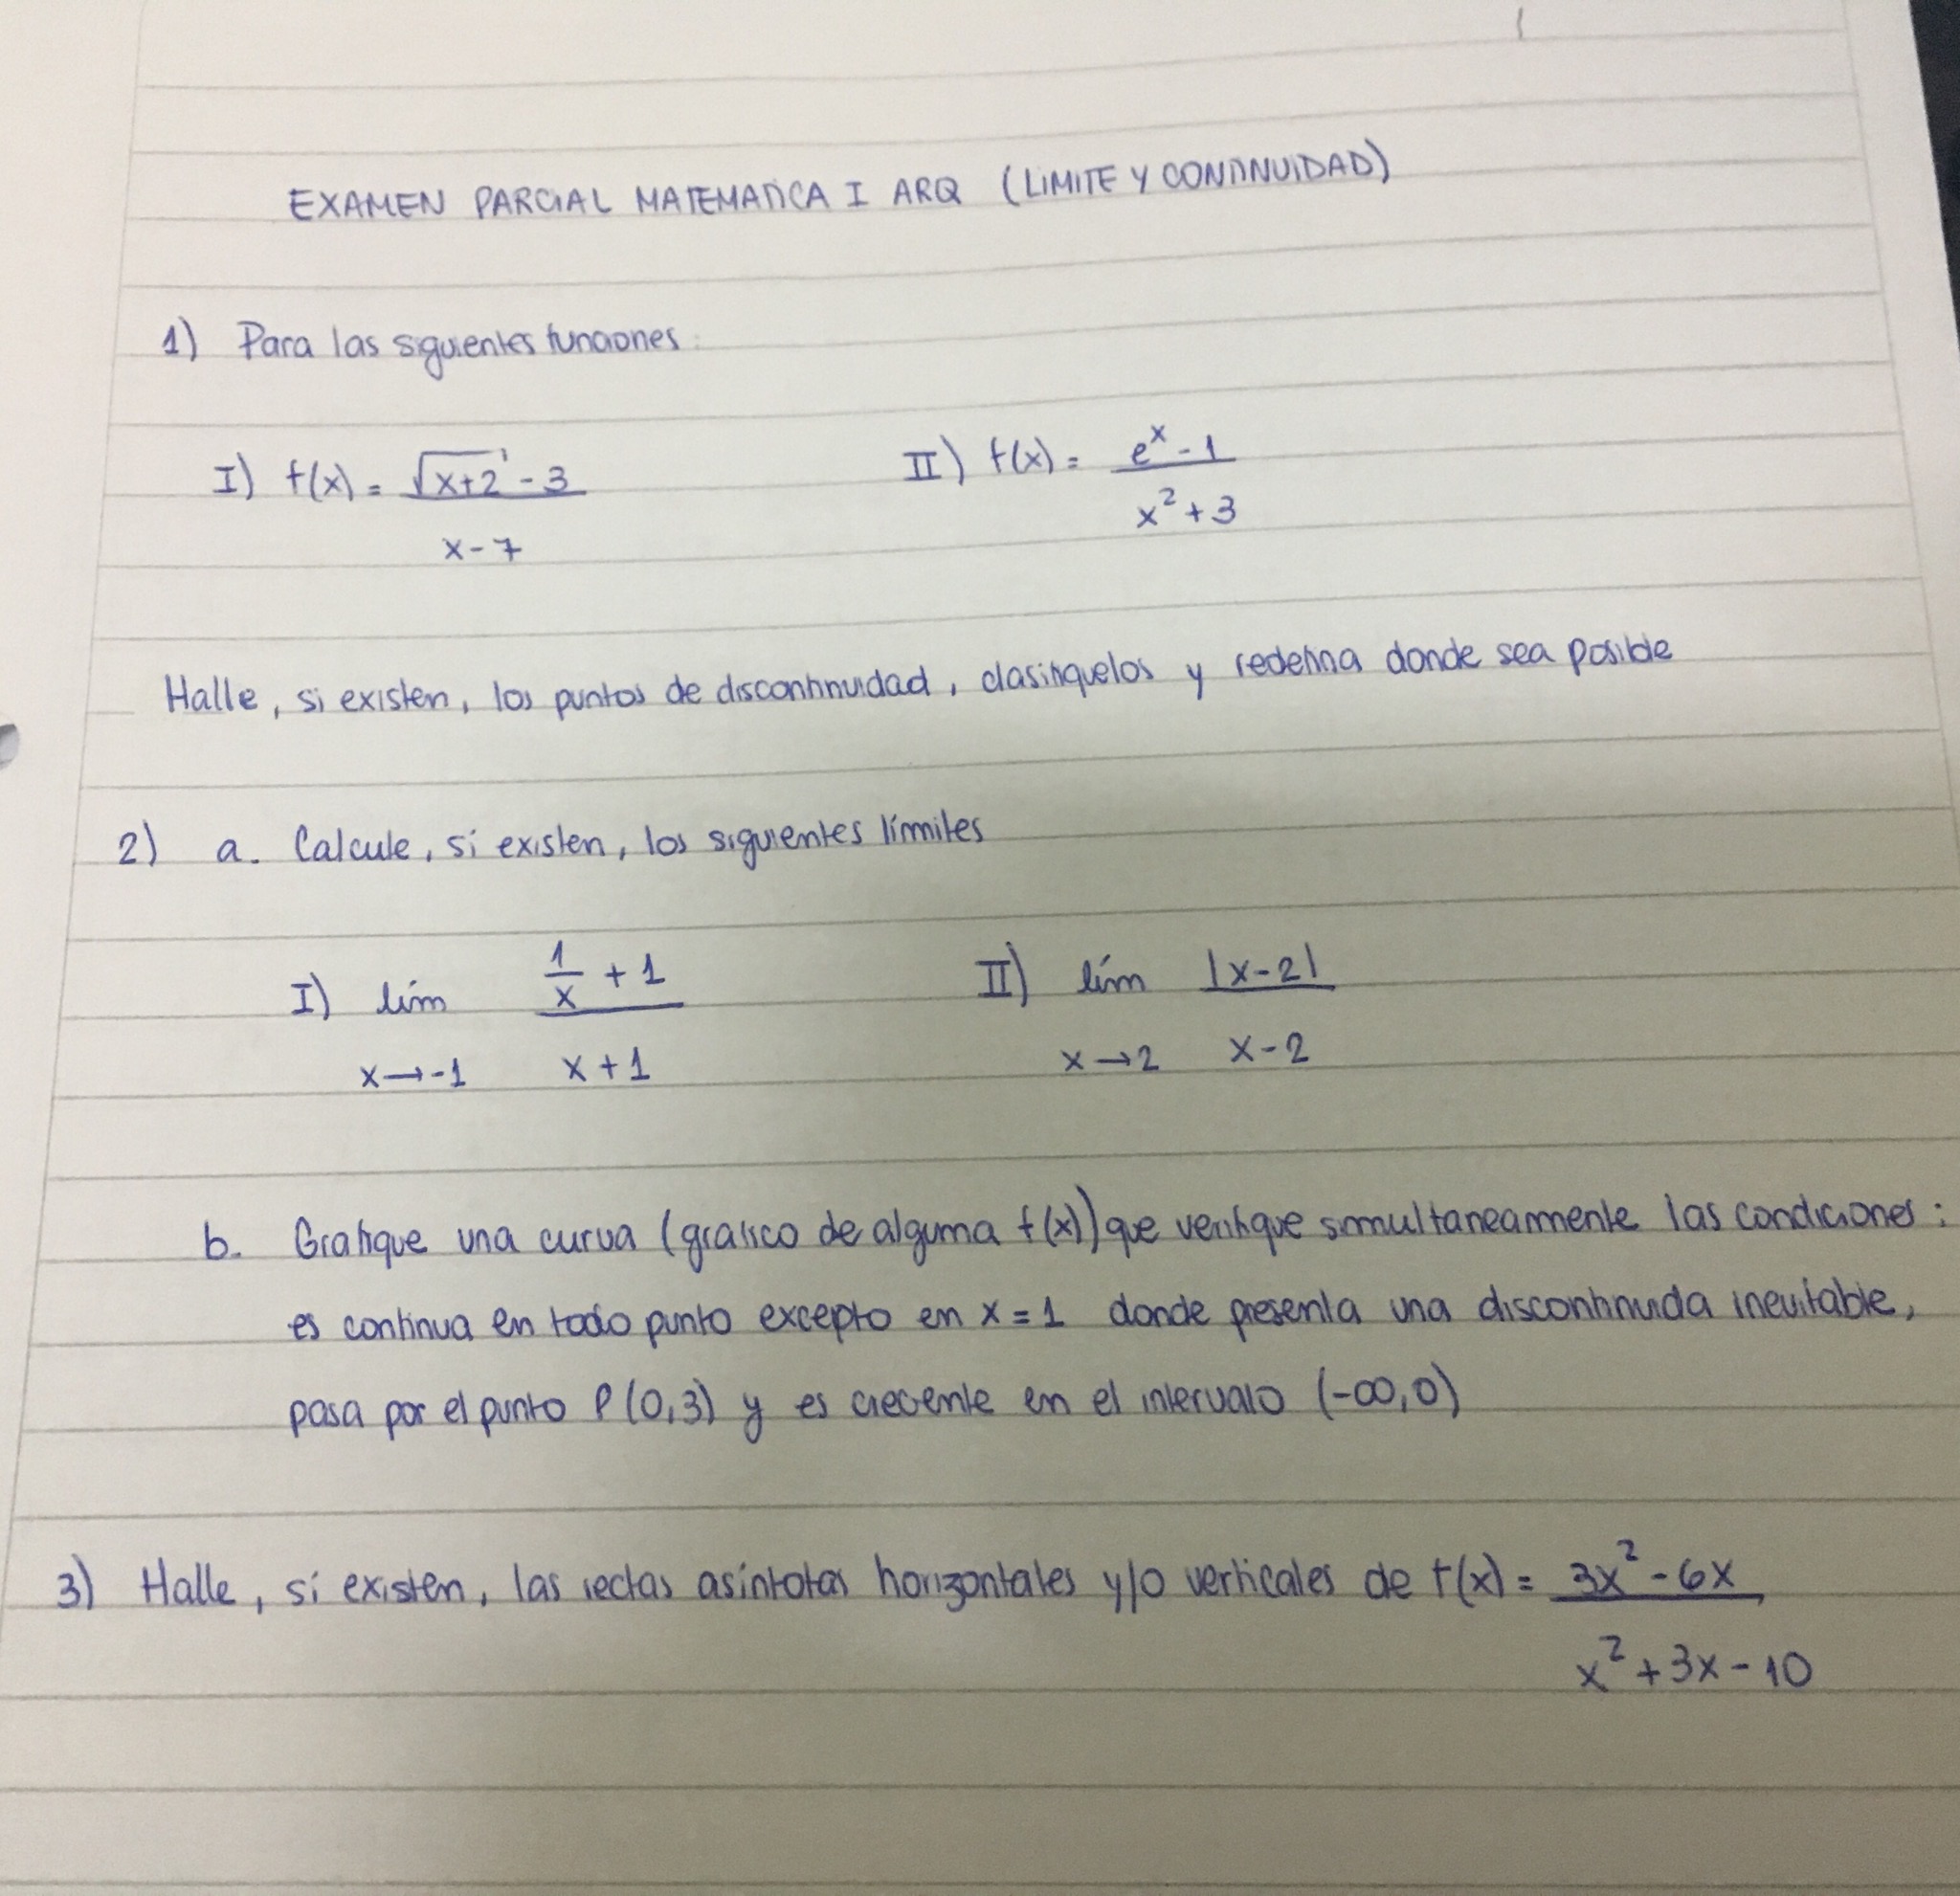 EXAMEN PARCIAL MATEMATICA I ARQ (LIMITE Y CONTINUIDAD)
1) Para las siguientes funciones:
I) f(x) = (√(x+2) - 3) / (x - 7)    II) f(x) = (e^x - 1) / (x² + 3)
Halle, si existen, los puntos de discontinuidad, clasifiquelos y redefina donde sea posible
2) a. Calcule, si existen, los siguientes límites
I) lím x→-1 (1/x + 1) / (x + 1)    II) lím x→2 |x-2| / (x-2)
b. Grafique una curva (grafico de alguna f(x)) que verifique simultaneamente las condiciones:
es continua en todo punto excepto en x = 1 donde presenta una discontinuida inevitable,
pasa por el punto P(0,3) y es creciente en el intervalo (-∞,0)
3) Halle, si existen, las rectas asíntotas horizontales y/o verticales de f(x) = (3x² - 6x) / (x² + 3x - 10)